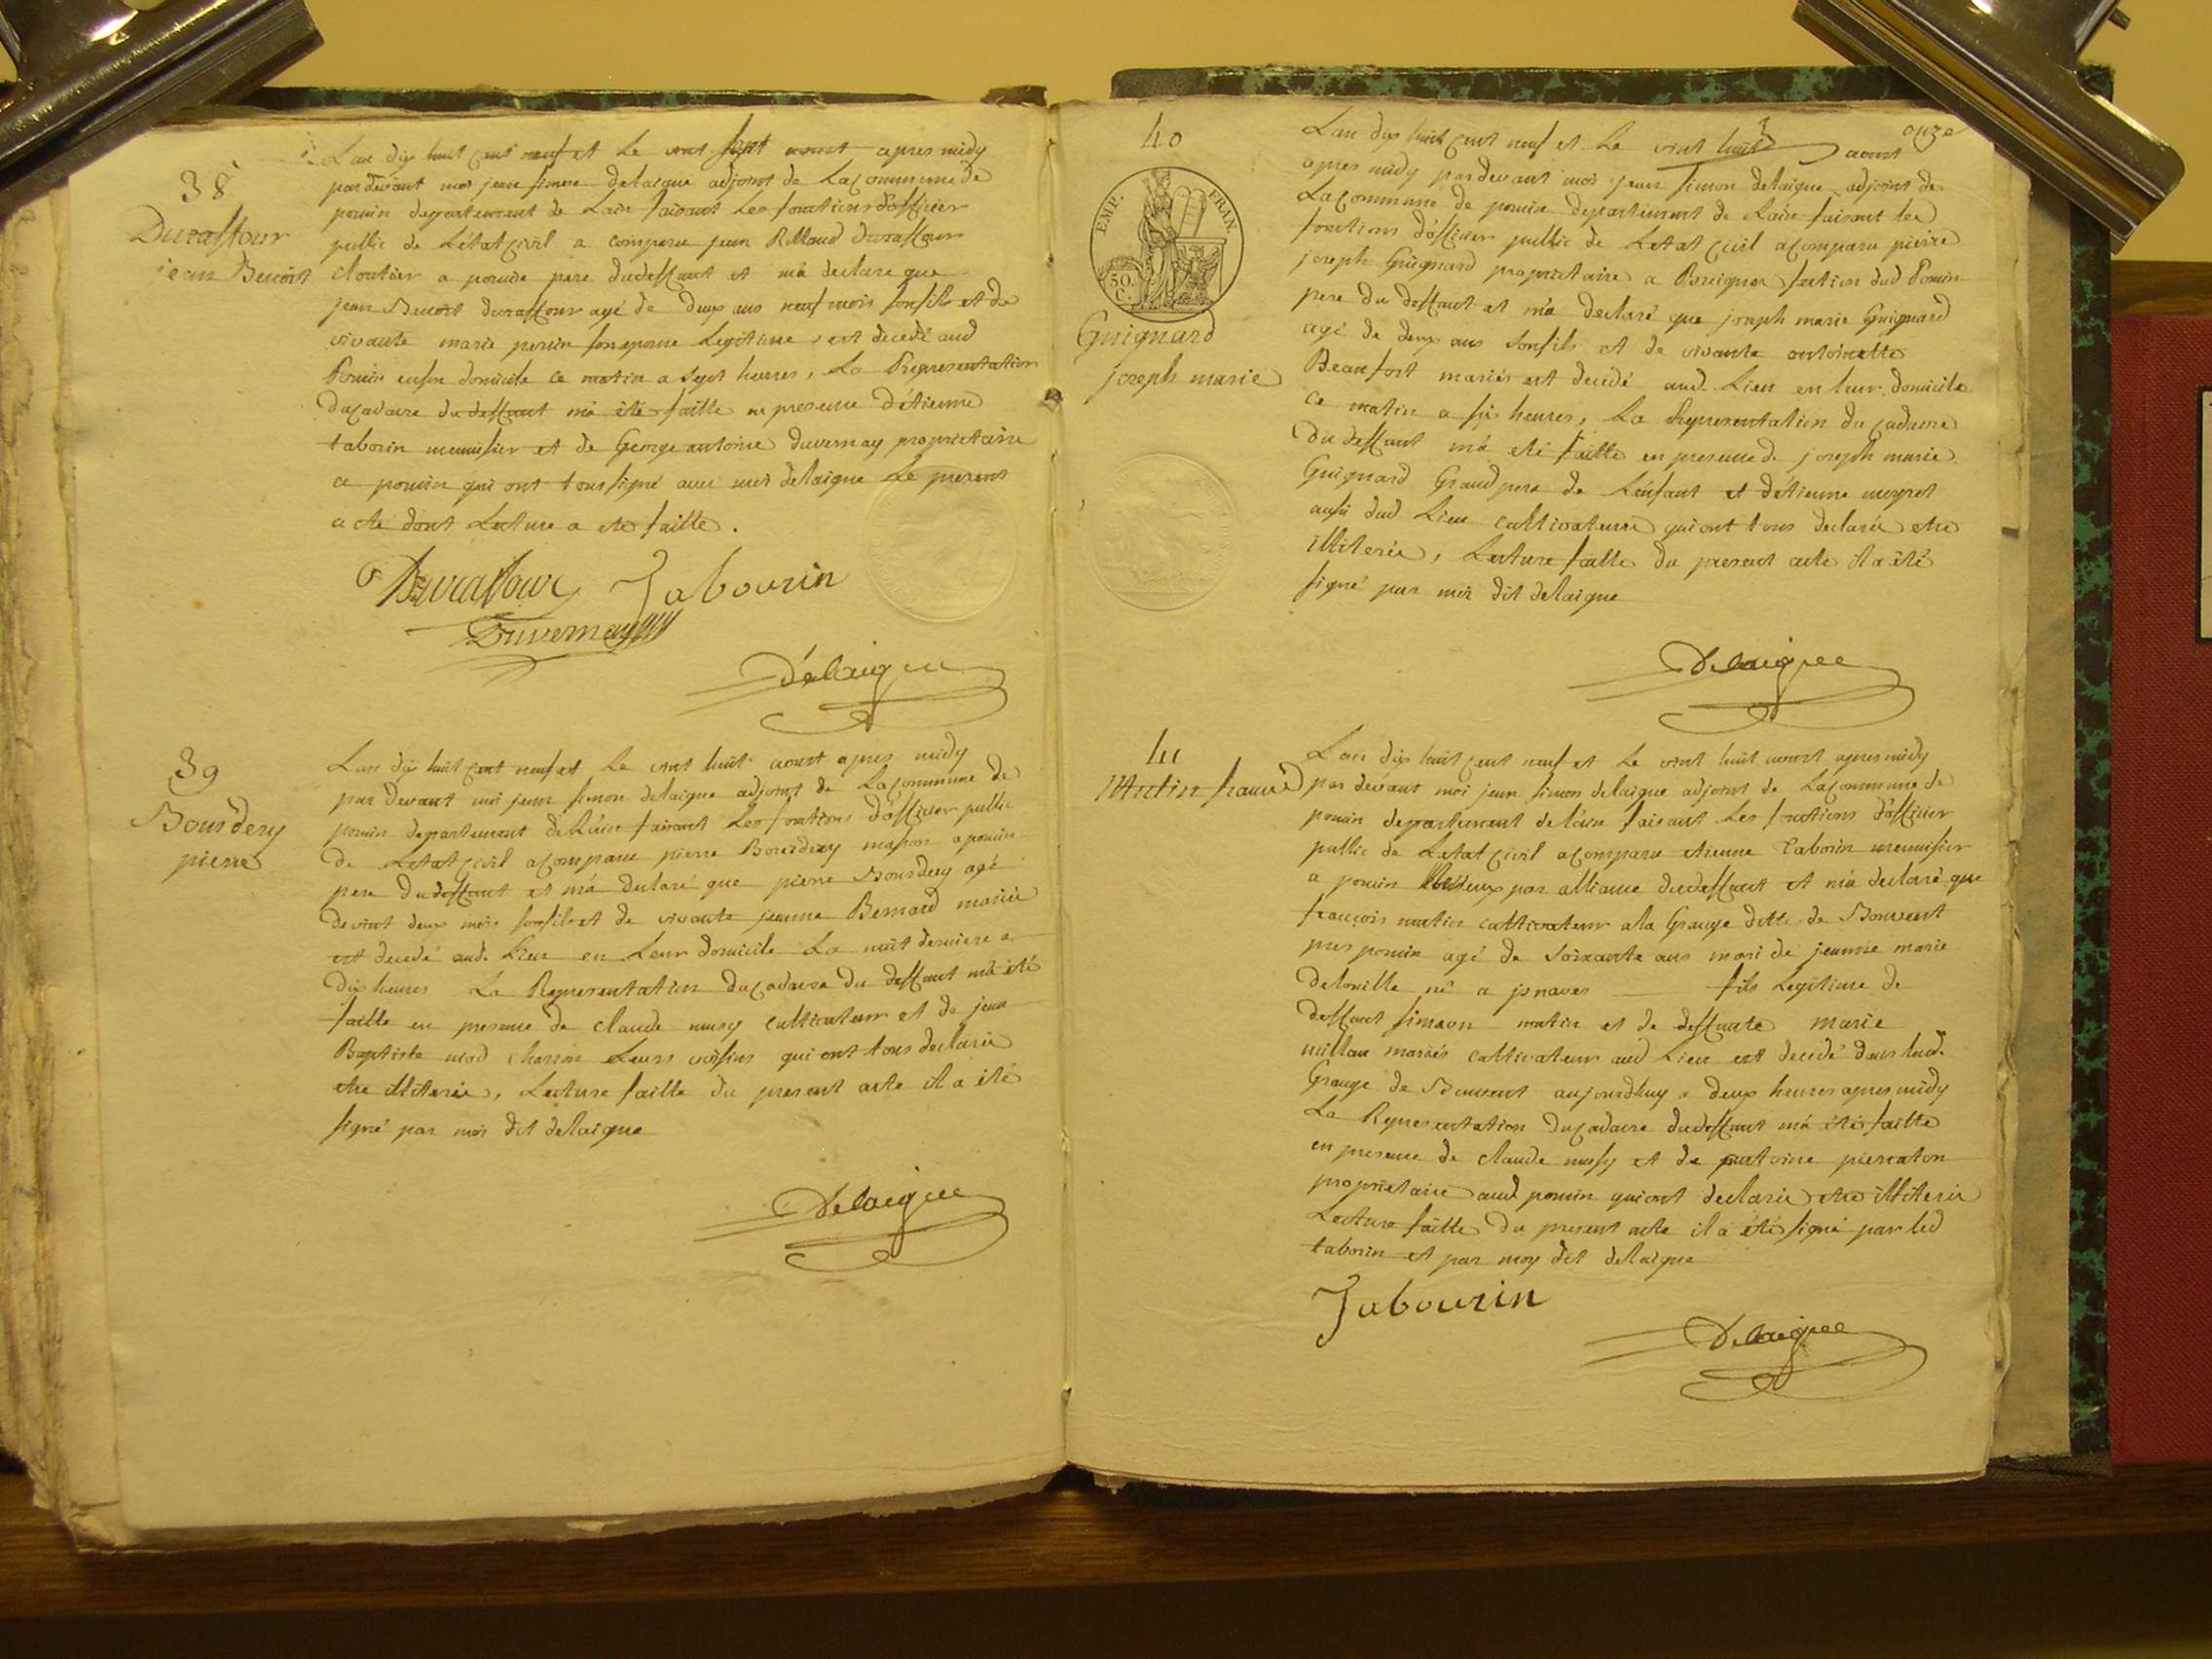 38
Duraffour
jean Benoit
Lan dix huit cent neuf et le vint sept aoust apres midy
pardevant moi jean simon delaigue adjoint de la commune de
poncin departement de Lain faisant les fonctions d'officier
public de L'état civil a comparu jean Rolland duraffour
cloutier a poncin pere du deffunt et m'a declare que
jean Benoit duraffour agé de deux ans neuf mois son fils et de
vivante marie perrin son epouse Legitime, est decedé aud
Poncin en son domicile ce matin a sept heures, La Representation
du cadavre du deffunt m'a été faitte en presence d'étienne
taborin menuisier et de George antoine duvernay proprietaire
a poncin qui ont tous signé avec moi delaigue Le present
acte dont Lecture a eté faitte.
Duraffour Tabourin
Duvernay
Delaigue
39
Bourdezy
pierre
Lan dix huit cent neuf et le vint huit aoust apres midy
par devant moi jean simon delaigue adjoint de La commune de
poncin departement de Lain faisant Les fonctions d'officier public
de Letat civil a comparu pierre Bourdezy masson a poncin
pere du deffunt et m'a declaré que pierre Bourdezy agé
de vint deux mois son fils et de vivante jeanne Bernard mariés
est decedé aud. Lieu en Leur domicile La nuit derniere a
dix heures La Representation du cadavre du deffunt m'a été
faitte en presence de claude musy cultivateur et de jean
Baptiste charron Leurs voisins qui ont tous declarés
etre illiterés, Lecture faitte du present acte il a été
signé par moi dit delaigue
Delaigue
onze
40
EMP. FRAN.
50 C.
Guignard
joseph marie
Lan dix huit cent neuf et Le vint huit aoust
apres midy pardevant moi jean simon delaigue adjoint de
La commune de poncin departement de Lain faisant les
fonctions d'officier public de Letat civil a comparu pierre
joseph Guignard proprietaire a Breignes section dud Poncin
pere du deffunt et m'a declaré que joseph marie Guignard
agé de deux ans son fils et de vivante antoinette
Beaufort mariés est decedé aud. Lieu en leur domicile
ce matin a six heures, La Representation du cadavre
du deffunt m'a eté faitte en presence de joseph marie
Guignard Grand pere de L'enfant et d'étienne
aussi dud Lieu cultivateurs qui ont tous declarés etre
illiterés, Lecture faitte du present acte il a été
signé par moi dit delaigue
Delaigue
41
Mutin francois
Lan dix huit cent neuf et Le vint huit aoust apres midy
par devant moi jean simon delaigue adjoint de La commune de
poncin departement de lain faisant Les fonctions d'officier
public de Letat civil a comparu etienne Taborin menuisier
a poncin par alliance du deffunt et m'a declaré que
françois mutin cultivateur a la Grange ditte de Bouvent
pres poncin agé de soixante ans mari de jeanne marie
né a fils Legitime de
deffunt simeon mutin et de deffunte marie
millan mariés cultivateur aud Lieu est decedé dans lad.
Grange de Bouvent aujourdhuy a deux heures apres midy
La Representation du cadavre du deffunt m'a été faitte
en presence de claude musy et de antoine
proprietaire aud poncin qui ont declarés etre illiterés
Lecture faitte du present acte il a été signé par led
taborin et par moy dit delaigue
Tabourin
Delaigue